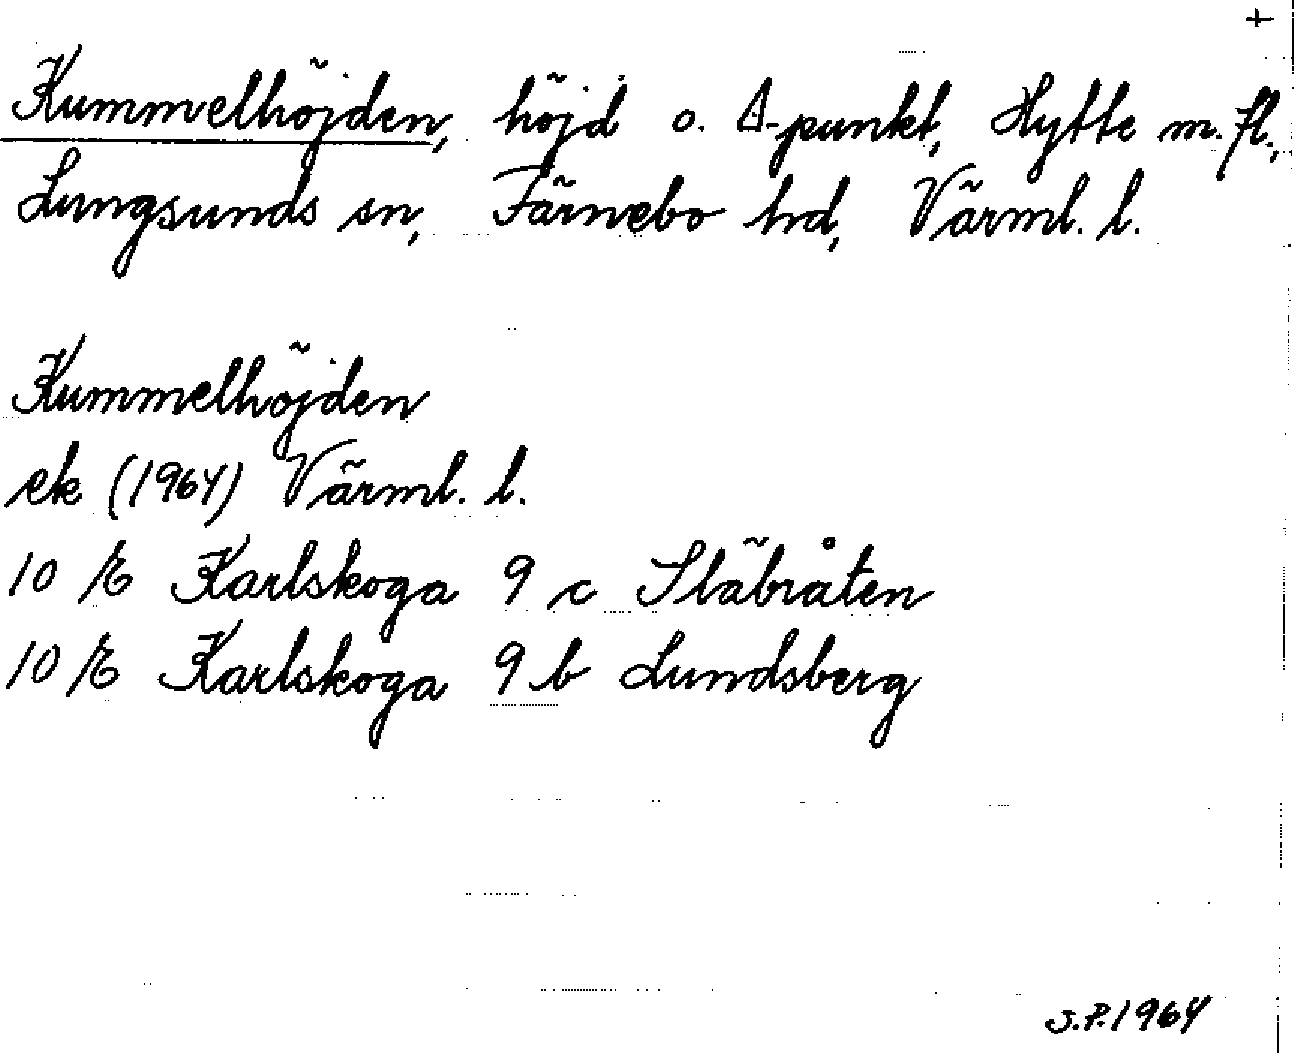 +
Kummelhöjden, höjd o. Δ-punkt, Hytte m. fl.,
Lungsunds sn, Färnebo hd, Värml. l.
Kummelhöjden
ek (1964) Värml. l.
10 E Karlskoga 9 c Släbråten
10 E Karlskoga 9 b Lundsberg
S.P. 1964